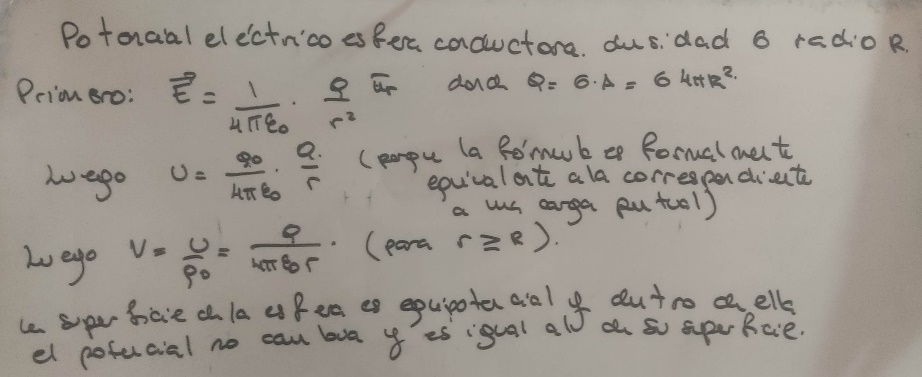 Potencial eléctrico esfera conductora. densidad σ radio R.
Primero: E⃗ = 1/4πε₀ · Q/r² ūr donde Q = σ·A = σ 4πR².
Luego U = q₀/4πε₀ · Q/r (porque la fórmula es formalmente
equivalente a la correspondiente
a una carga puntual)
Luego V = U/q₀ = Q/4πε₀r · (para r ≥ R).
La superficie de la esfera es equipotencial y dentro de ella
el potencial no cambia y es igual al de su superficie.